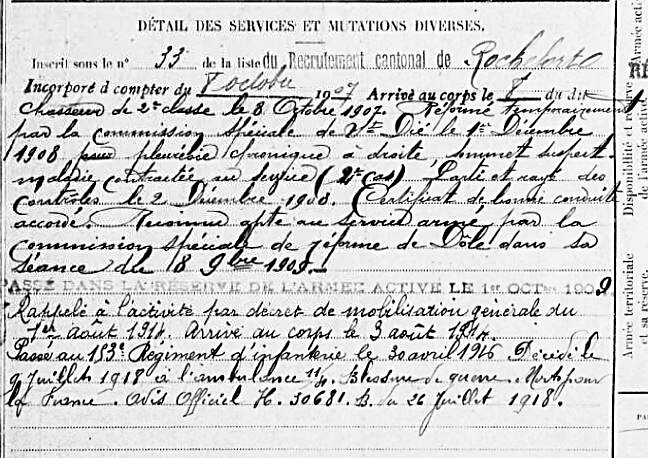 DÉTAIL DES SERVICES ET MUTATIONS DIVERSES.
Inscrit sous le n° 33 de la liste du Recrutement cantonal de Rochefort
Incorporé à compter du 8 octobre 1907 Arrivé au corps le 8 du dit
Chasseur de 2e classe le 8 Octobre 1907. Réformé temporairement
par la commission spéciale de St Dié le 1er Décembre
1908, pour pleurésie chronique à droite, sommet suspect.
maladie contractée au service (2e cas) Parti et rayé des
contrôles le 2 Décembre 1908. Certificat de bonne conduite
accordé. Reconnu apte au service armé par la
commission spéciale de réforme de Dôle dans sa
Séance du 8 9bre 1909.
PASSÉ DANS LA RÉSERVE DE L'ARMÉE ACTIVE LE 1er OCTbre 1909
Rappelé à l'activité par décret de mobilisation générale du
1er août 1914. Arrivé au corps le 3 août 1914.
Passé au 153e Régiment d'infanterie le 30 avril 1916 Décédé le
9 Juillet 1918 à l'ambulance 11/4. Blessure de guerre. Mort pour
la France. Avis Officiel H. 30681. B. du 26 Juillet 1918.
Disponibilité et réserve
de l'armée active
Armée territoriale
et sa réserve.